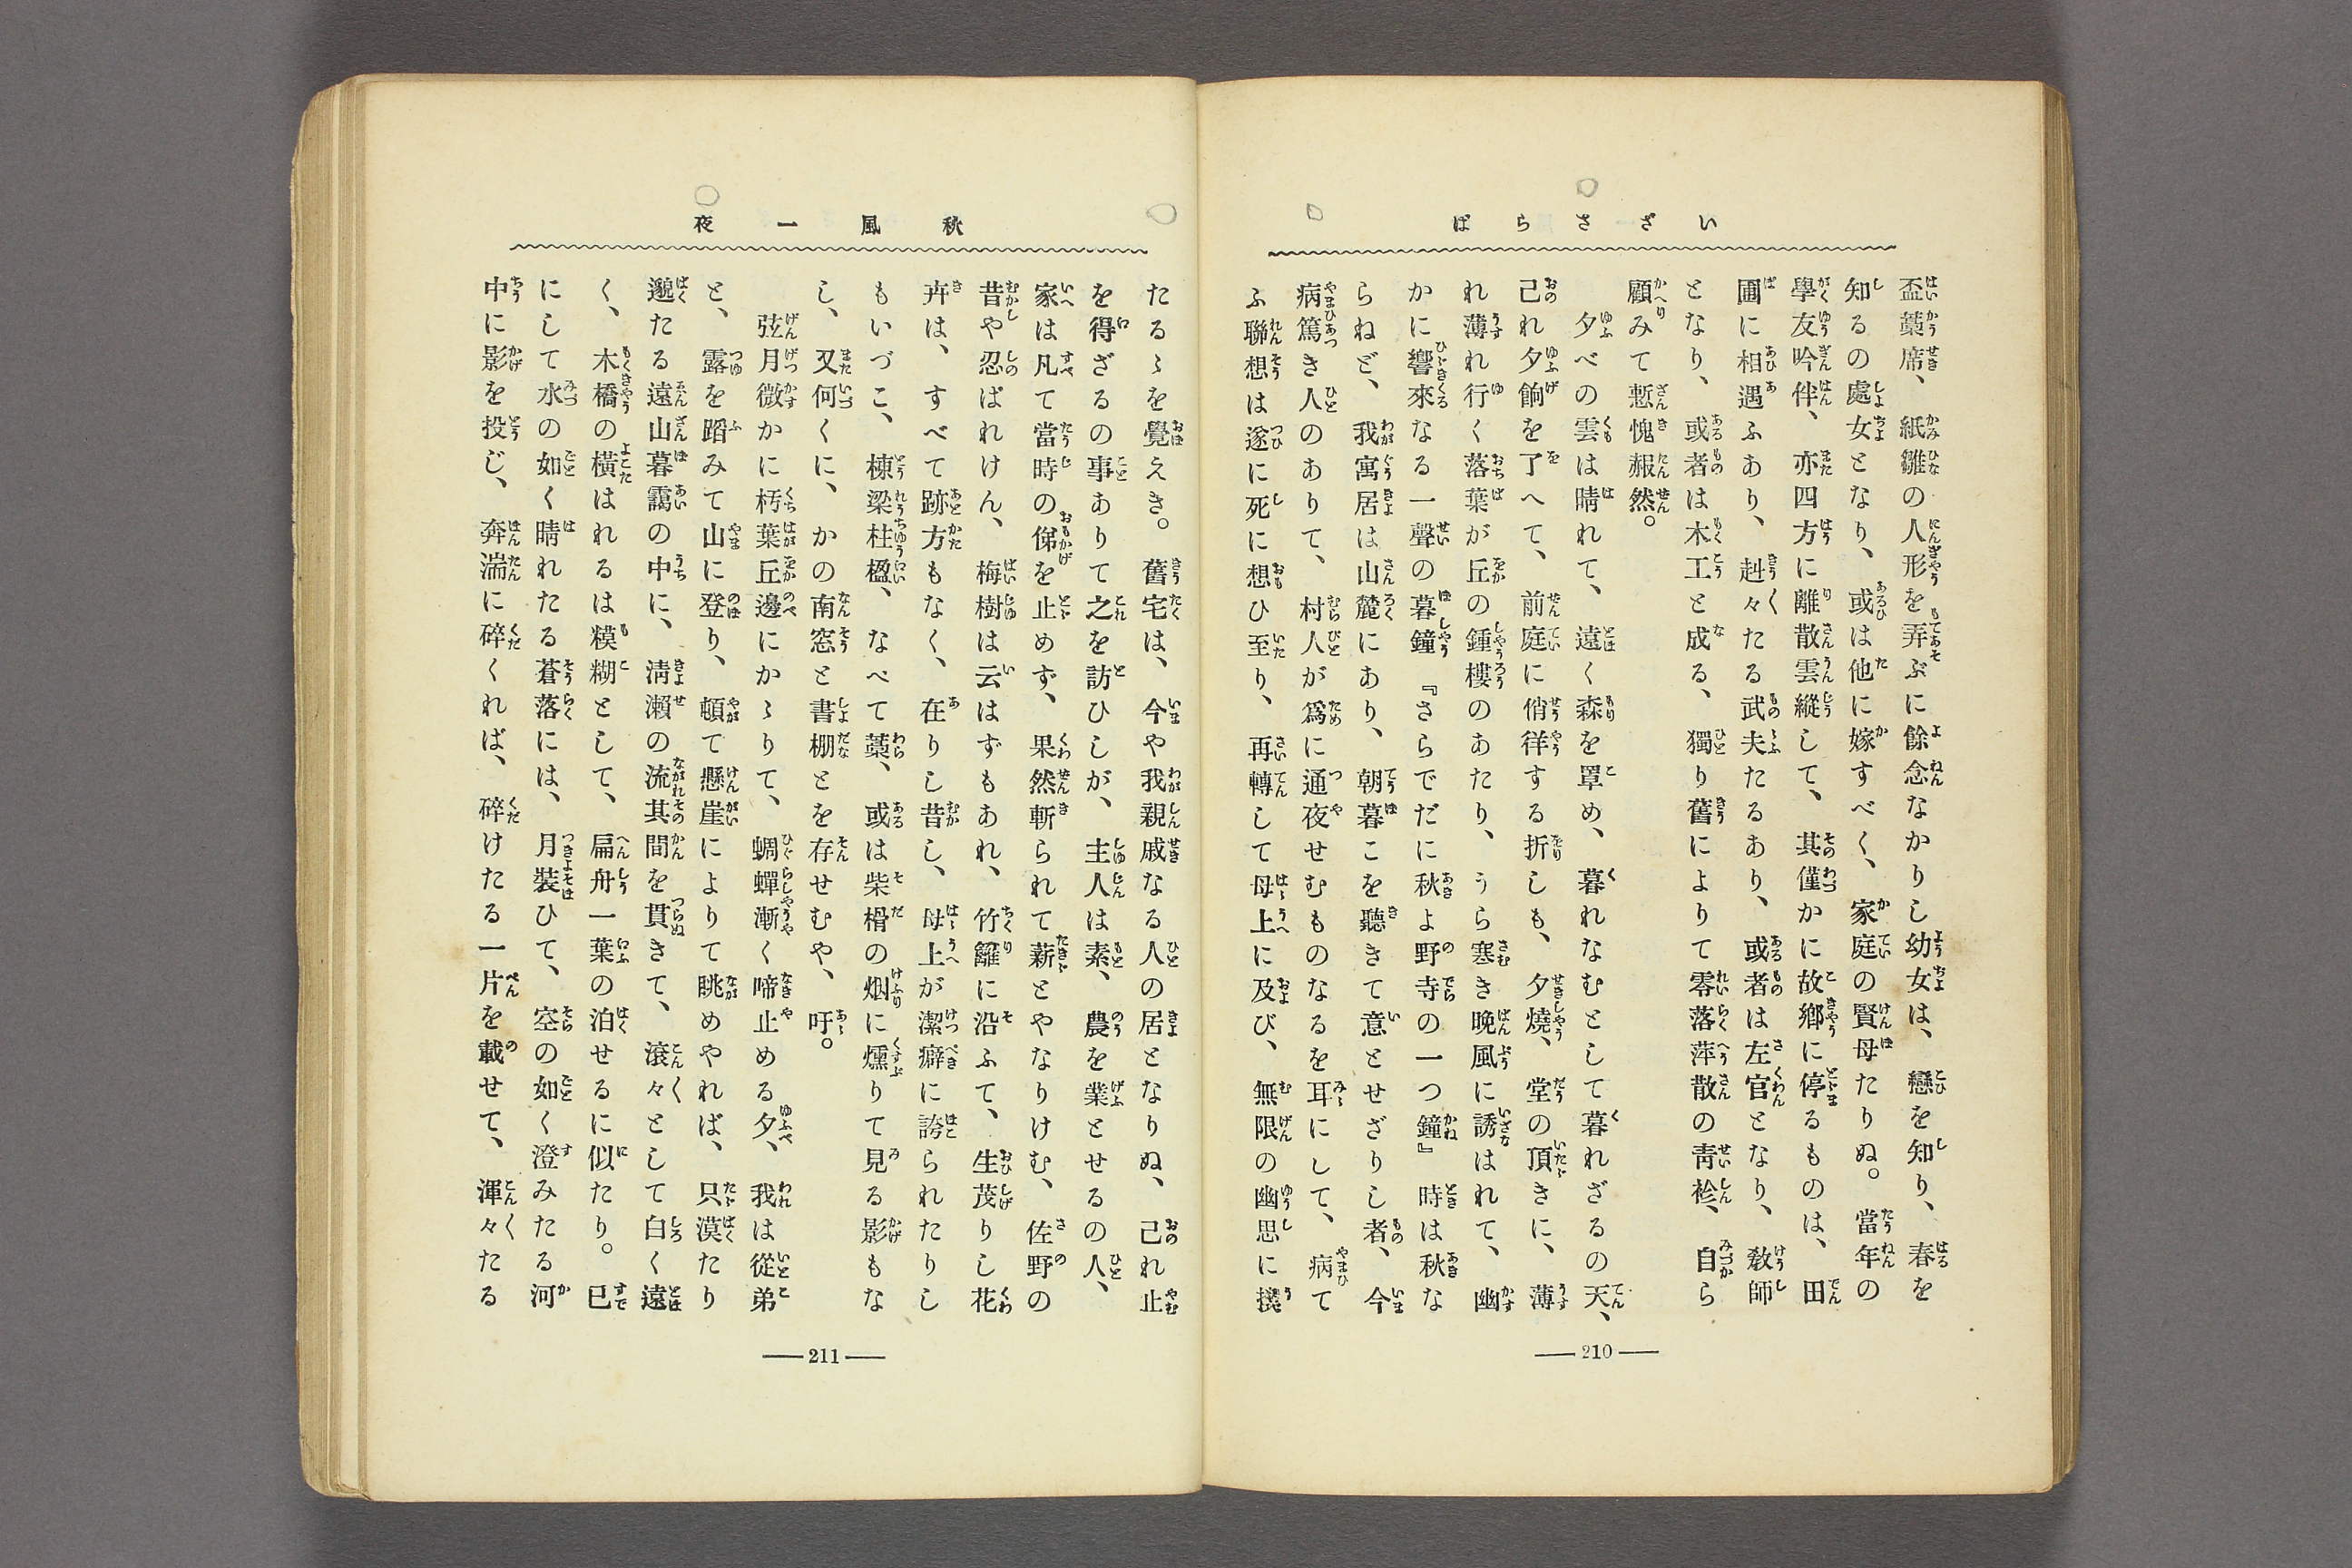 いざさらば
盃藁席、紙雛の人形を弄ぶに餘念なかりし幼女は、戀を知り、春を
知るの處女となり、或は他に嫁すべく、家庭の賢母たりぬ。當年の
學友吟伴、亦四方に離散雲縱して、其僅かに故鄕に停るものは、田
圃に相遇ふあり、赳々たる武夫たるあり、或者は左官となり、敎師
となり、或者は木工と成る、獨り舊によりて零落萍散の靑衿、自ら
顧みて慙愧赧然。
夕べの雲は晴れて、遠く森を罩め、暮れなむとして暮れざるの天、
己れ夕餉を了へて、前庭に俏徉する折しも、夕燒、堂の頂きに、薄
れ薄れ行く落葉が丘の鍾樓のあたり、うら塞き晩風に誘はれて、幽
かに響來なる一聲の暮鐘『さらでだに秋よ野寺の一つ鐘』時は秋な
らねど、我寓居は山麓にあり、朝暮こを聽きて意とせざりし者、今
病篤き人のありて、村人が爲に通夜せむものなるを耳にして、病て
ふ聯想は遂に死に想ひ至り、再轉して母上に及び、無限の幽思に撲
210
秋風一夜
たるゝを覺えき。舊宅は、今や我親戚なる人の居となりぬ、己れ止
を得ざるの事ありて之を訪ひしが、主人は素、農を業とせるの人、
家は凡て當時の俤を止めず、果然斬られて薪とやなりけむ、佐野の
昔や忍ばれけん、梅樹は云はずもあれ、竹籬に沿ふて、生茂りし花
卉は、すべて跡方もなく、在りし昔し、母上が潔癖に誇られたりし
もいづこ、棟梁柱楹、なべて藁、或は柴榾の烟に燻りて見る影もな
し、又何くに、かの南窓と書棚とを存せむや、吁。
弦月微かに朽葉丘邊にかゝりて、蜩蟬漸く啼止める夕、我は從弟
と、露を蹈みて山に登り、頓て懸崖によりて眺めやれば、只漠たり
邈たる遠山暮靄の中に、淸瀨の流其間を貫きて、滾々として白く遠
く、木橋の橫はれるは糢糊として、扁舟一葉の泊せるに似たり。已
にして水の如く晴れたる蒼落には、月裝ひて、空の如く澄みたる河
中に影を投じ、奔湍に碎くれば、碎けたる一片を載せて、渾々たる
211